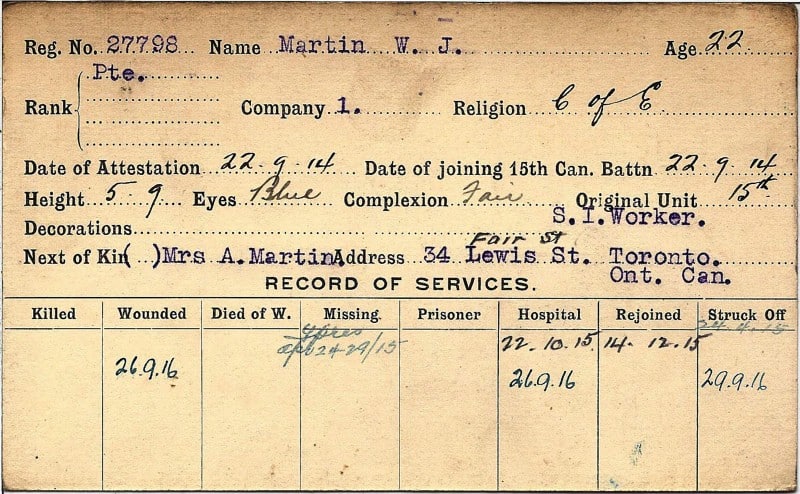 Reg. No. 27798 Name Martin W. J. Age 22
Pte.
Rank Company 1. Religion C of E
Date of Attestation 22.9.14 Date of joining 15th Can. Battn 22.9.14
Height 5 9 Eyes Blue Complexion Fair Original Unit 15th
Decorations S.I.Worker.
Fair St
Next of Kin ( ) Mrs A.Martin. Address 34 Lewis St. Toronto.
Ont. Can.
RECORD OF SERVICES.
Killed Wounded Died of W. Missing. Prisoner Hospital Rejoined Struck Off
Ypres 24.4.15
Apl 24-29/15 22.10.15 14.12.15
26.9.16 26.9.16 29.9.16